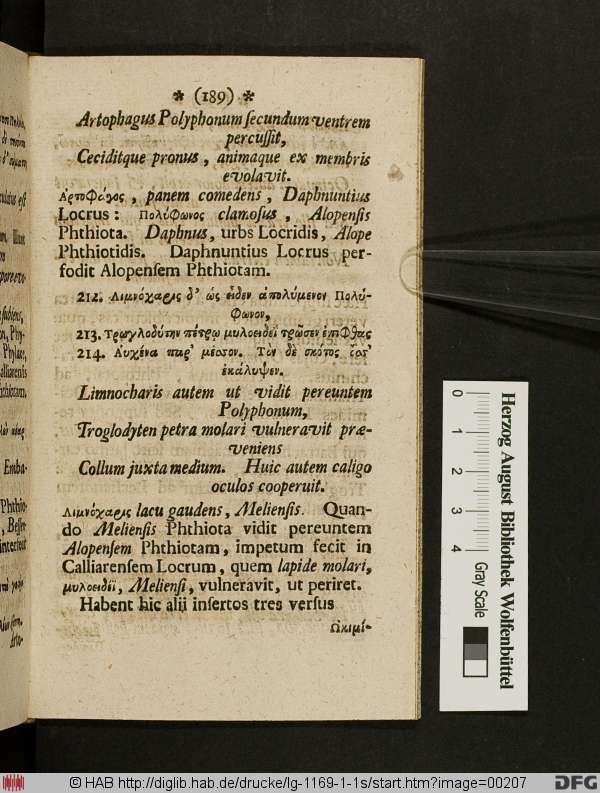 * (189) *
Artophagus Polyphonum secundum ventrem
percussit,
Ceciditque pronus, animaque ex membris
evolavit.
Ἀρτοφάγος, panem comedens, Daphnuntius
Locrus: Πολύφωνος clamosus, Alopensis
Phthiota. Daphnus, urbs Locridis, Alope
Phthiotidis. Daphnuntius Locrus per-
fodit Alopensem Phthiotam.
212. Λιμνόχαρις δ' ὡς εἶδεν ἀπολύμενον Πολύ-
Φωνον,
213. Τρωγλοδύτην πέτρῳ μυλοειδεῖ τρῶσεν ἐπιφθὰς
214. Αὐχένα παρ' μέσσον. Τὸν δὲ σκότος
ἐκάλυψεν.
Limnocharis autem ut vidit pereuntem
Polyphonum,
Troglodyten petra molari vulneravit præ-
veniens
Collum juxta medium. Huic autem caligo
oculos cooperuit.
Λιμνόχαρις lacu gaudens, Meliensis. Quan-
do Meliensis Phthiota vidit pereuntem
Alopensem Phthiotam, impetum fecit in
Calliarensem Locrum, quem lapide molari,
μυλοειδέϊ, Meliensi, vulneravit, ut periret.
Habent hic alii insertos tres versus
Ωκιμί-
0 1 2 3 4
Gray Scale
Herzog August Bibliothek Wolfenbüttel
© HAB http://diglib.hab.de/drucke/lg-1169-1-1s/start.htm?image=00207
DFG